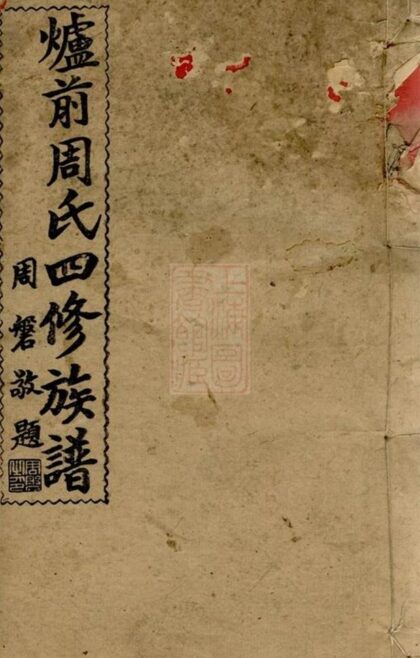 爐前周氏四修族譜
周磐敬題
上海圖書館藏